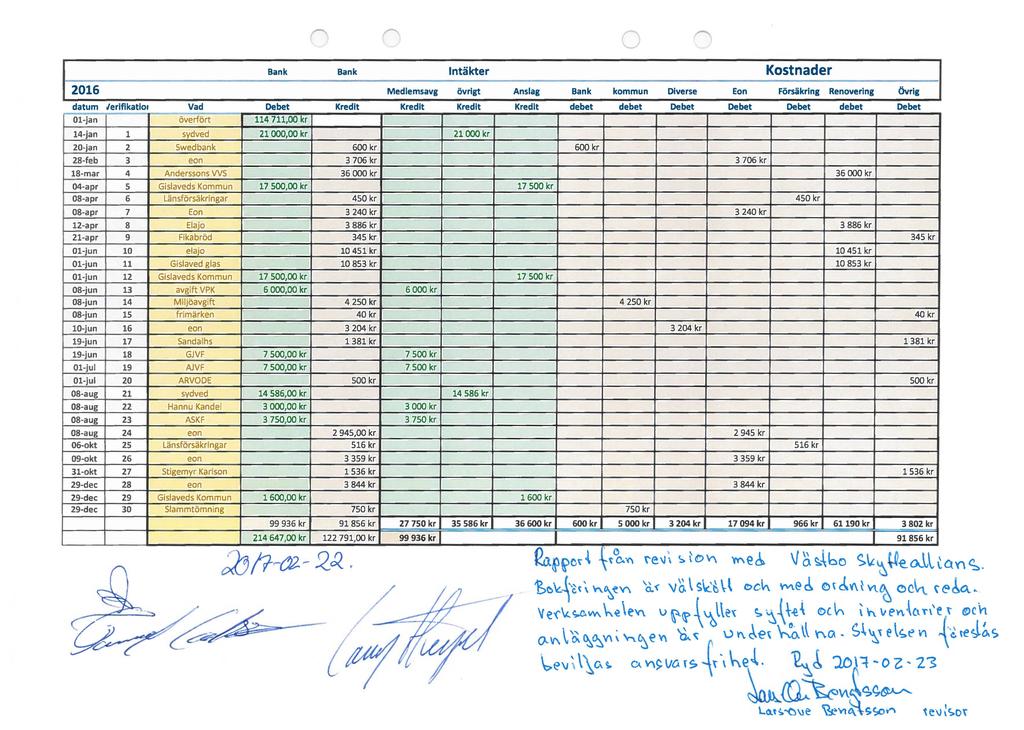 Bank Bank Intäkter Kostnader
2016 Medlemsavg övrigt Anslag Bank kommun Diverse Eon Försäkring Renovering Övrig
datum /erifikatior Vad Debet Kredit Kredit Kredit Kredit debet debet Debet debet Debet debet Debet
01-jan överfört 114 711,00 kr
14-jan 1 sydved 21 000,00 kr 21 000 kr
20-jan 2 Swedbank 600 kr 600 kr
28-feb 3 eon 3 706 kr 3 706 kr
18-mar 4 Anderssons VVS 36 000 kr 36 000 kr
04-apr 5 Gislaveds Kommun 17 500,00 kr 17 500 kr
08-apr 6 Länsförsäkringar 450 kr 450 kr
08-apr 7 Eon 3 240 kr 3 240 kr
12-apr 8 Elajo 3 886 kr 3 886 kr
21-apr 9 Fikabröd 345 kr 345 kr
01-jun 10 elajo 10 451 kr 10 451 kr
01-jun 11 Gislaved glas 10 853 kr 10 853 kr
01-jun 12 Gislaveds Kommun 17 500,00 kr 17 500 kr
08-jun 13 avgift VPK 6 000,00 kr 6 000 kr
08-jun 14 Miljöavgift 4 250 kr 4 250 kr
08-jun 15 frimärken 40 kr 40 kr
10-jun 16 eon 3 204 kr 3 204 kr
19-jun 17 Sandalhs 1 381 kr 1 381 kr
19-jun 18 GJVF 7 500,00 kr 7 500 kr
01-jul 19 AJVF 7 500,00 kr 7 500 kr
01-jul 20 ARVODE 500 kr 500 kr
08-aug 21 sydved 14 586,00 kr 14 586 kr
08-aug 22 Hannu Kandel 3 000,00 kr 3 000 kr
08-aug 23 ASKF 3 750,00 kr 3 750 kr
08-aug 24 eon 2 945,00 kr 2 945 kr
06-okt 25 Länsförsäkringar 516 kr 516 kr
09-okt 26 eon 3 359 kr 3 359 kr
31-okt 27 Stigemyr Karlson 1 536 kr 1 536 kr
29-dec 28 eon 3 844 kr 3 844 kr
29-dec 29 Gislaveds Kommun 1 600,00 kr 1 600 kr
29-dec 30 Slammtömning 750 kr 750 kr
99 936 kr 91 856 kr 27 750 kr 35 586 kr 36 600 kr 600 kr 5 000 kr 3 204 kr 17 094 kr 966 kr 61 190 kr 3 802 kr
214 647,00 kr 122 791,00 kr 99 936 kr 91 856 kr
2017-02-22.
Rapport från revision med Västbo Skytteallians.
Bokföringen är välskött och med ordning och reda.
verksamheten uppfyller syftet och inventarier och
anläggningen är underhållna. Styrelsen föreslås
beviljas ansvarsfrihet. Ryd 2017-02-23
Lars-Ove Bengtsson revisor